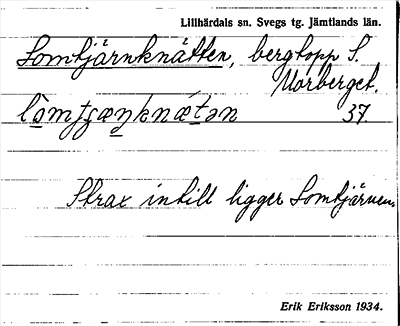 Lillhärdals sn. Svegs tg. Jämtlands län.
Lomtjärnknätten, bergtopp S.
Morberget.
37.
Strax intill ligger Lomtjärnen.
Erik Eriksson 1934.